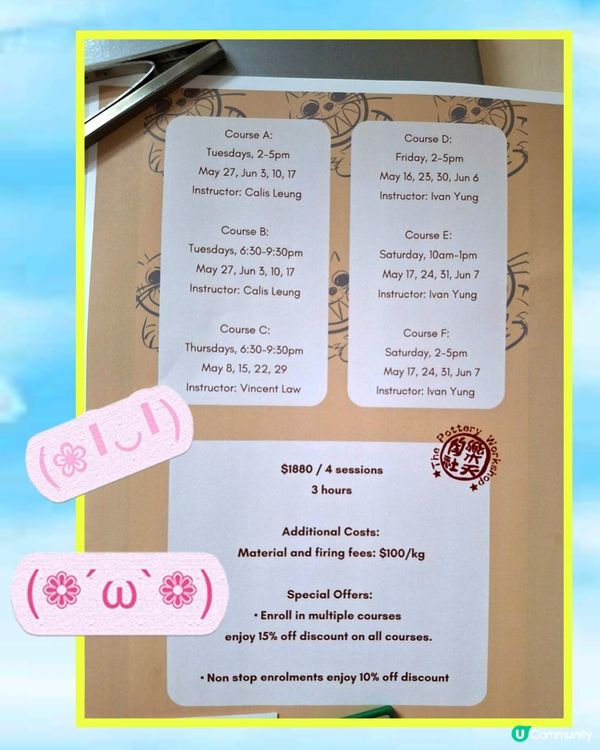 Course A:
Tuesdays, 2-5pm
May 27, Jun 3, 10, 17
Instructor: Calis Leung
Course B:
Tuesdays, 6:30-9:30pm
May 27, Jun 3, 10, 17
Instructor: Calis Leung
Course C:
Thursdays, 6:30-9:30pm
May 8, 15, 22, 29
Instructor: Vincent Law
Course D:
Friday, 2-5pm
May 16, 23, 30, Jun 6
Instructor: Ivan Yung
Course E:
Saturday, 10am-1pm
May 17, 24, 31, Jun 7
Instructor: Ivan Yung
Course F:
Saturday, 2-5pm
May 17, 24, 31, Jun 7
Instructor: Ivan Yung
The Pottery Workshop
樂天
陶社
$1880 / 4 sessions
3 hours
Additional Costs:
Material and firing fees: $100/kg
Special Offers:
• Enroll in multiple courses
enjoy 15% off discount on all courses.
• Non stop enrolments enjoy 10% off discount
(❀╹◡╹)
(❁´ω`❁)
U Community